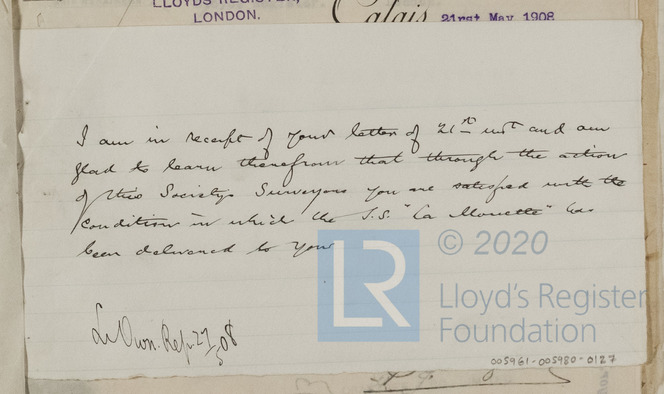 LLOYDS REGISTER,
LONDON.
Calais 21rst May 1908
I am in receipt of your letter of 21st inst and am
glad to learn therefrom that through the action
of this Society's Surveyors you are satisfied with the
condition in which the S.S. "La Mouette" has
been delivered to you
Lr Own. Rep. 27/5/08
© 2020
LR
Lloyd's Register
Foundation
005961-005980-0127